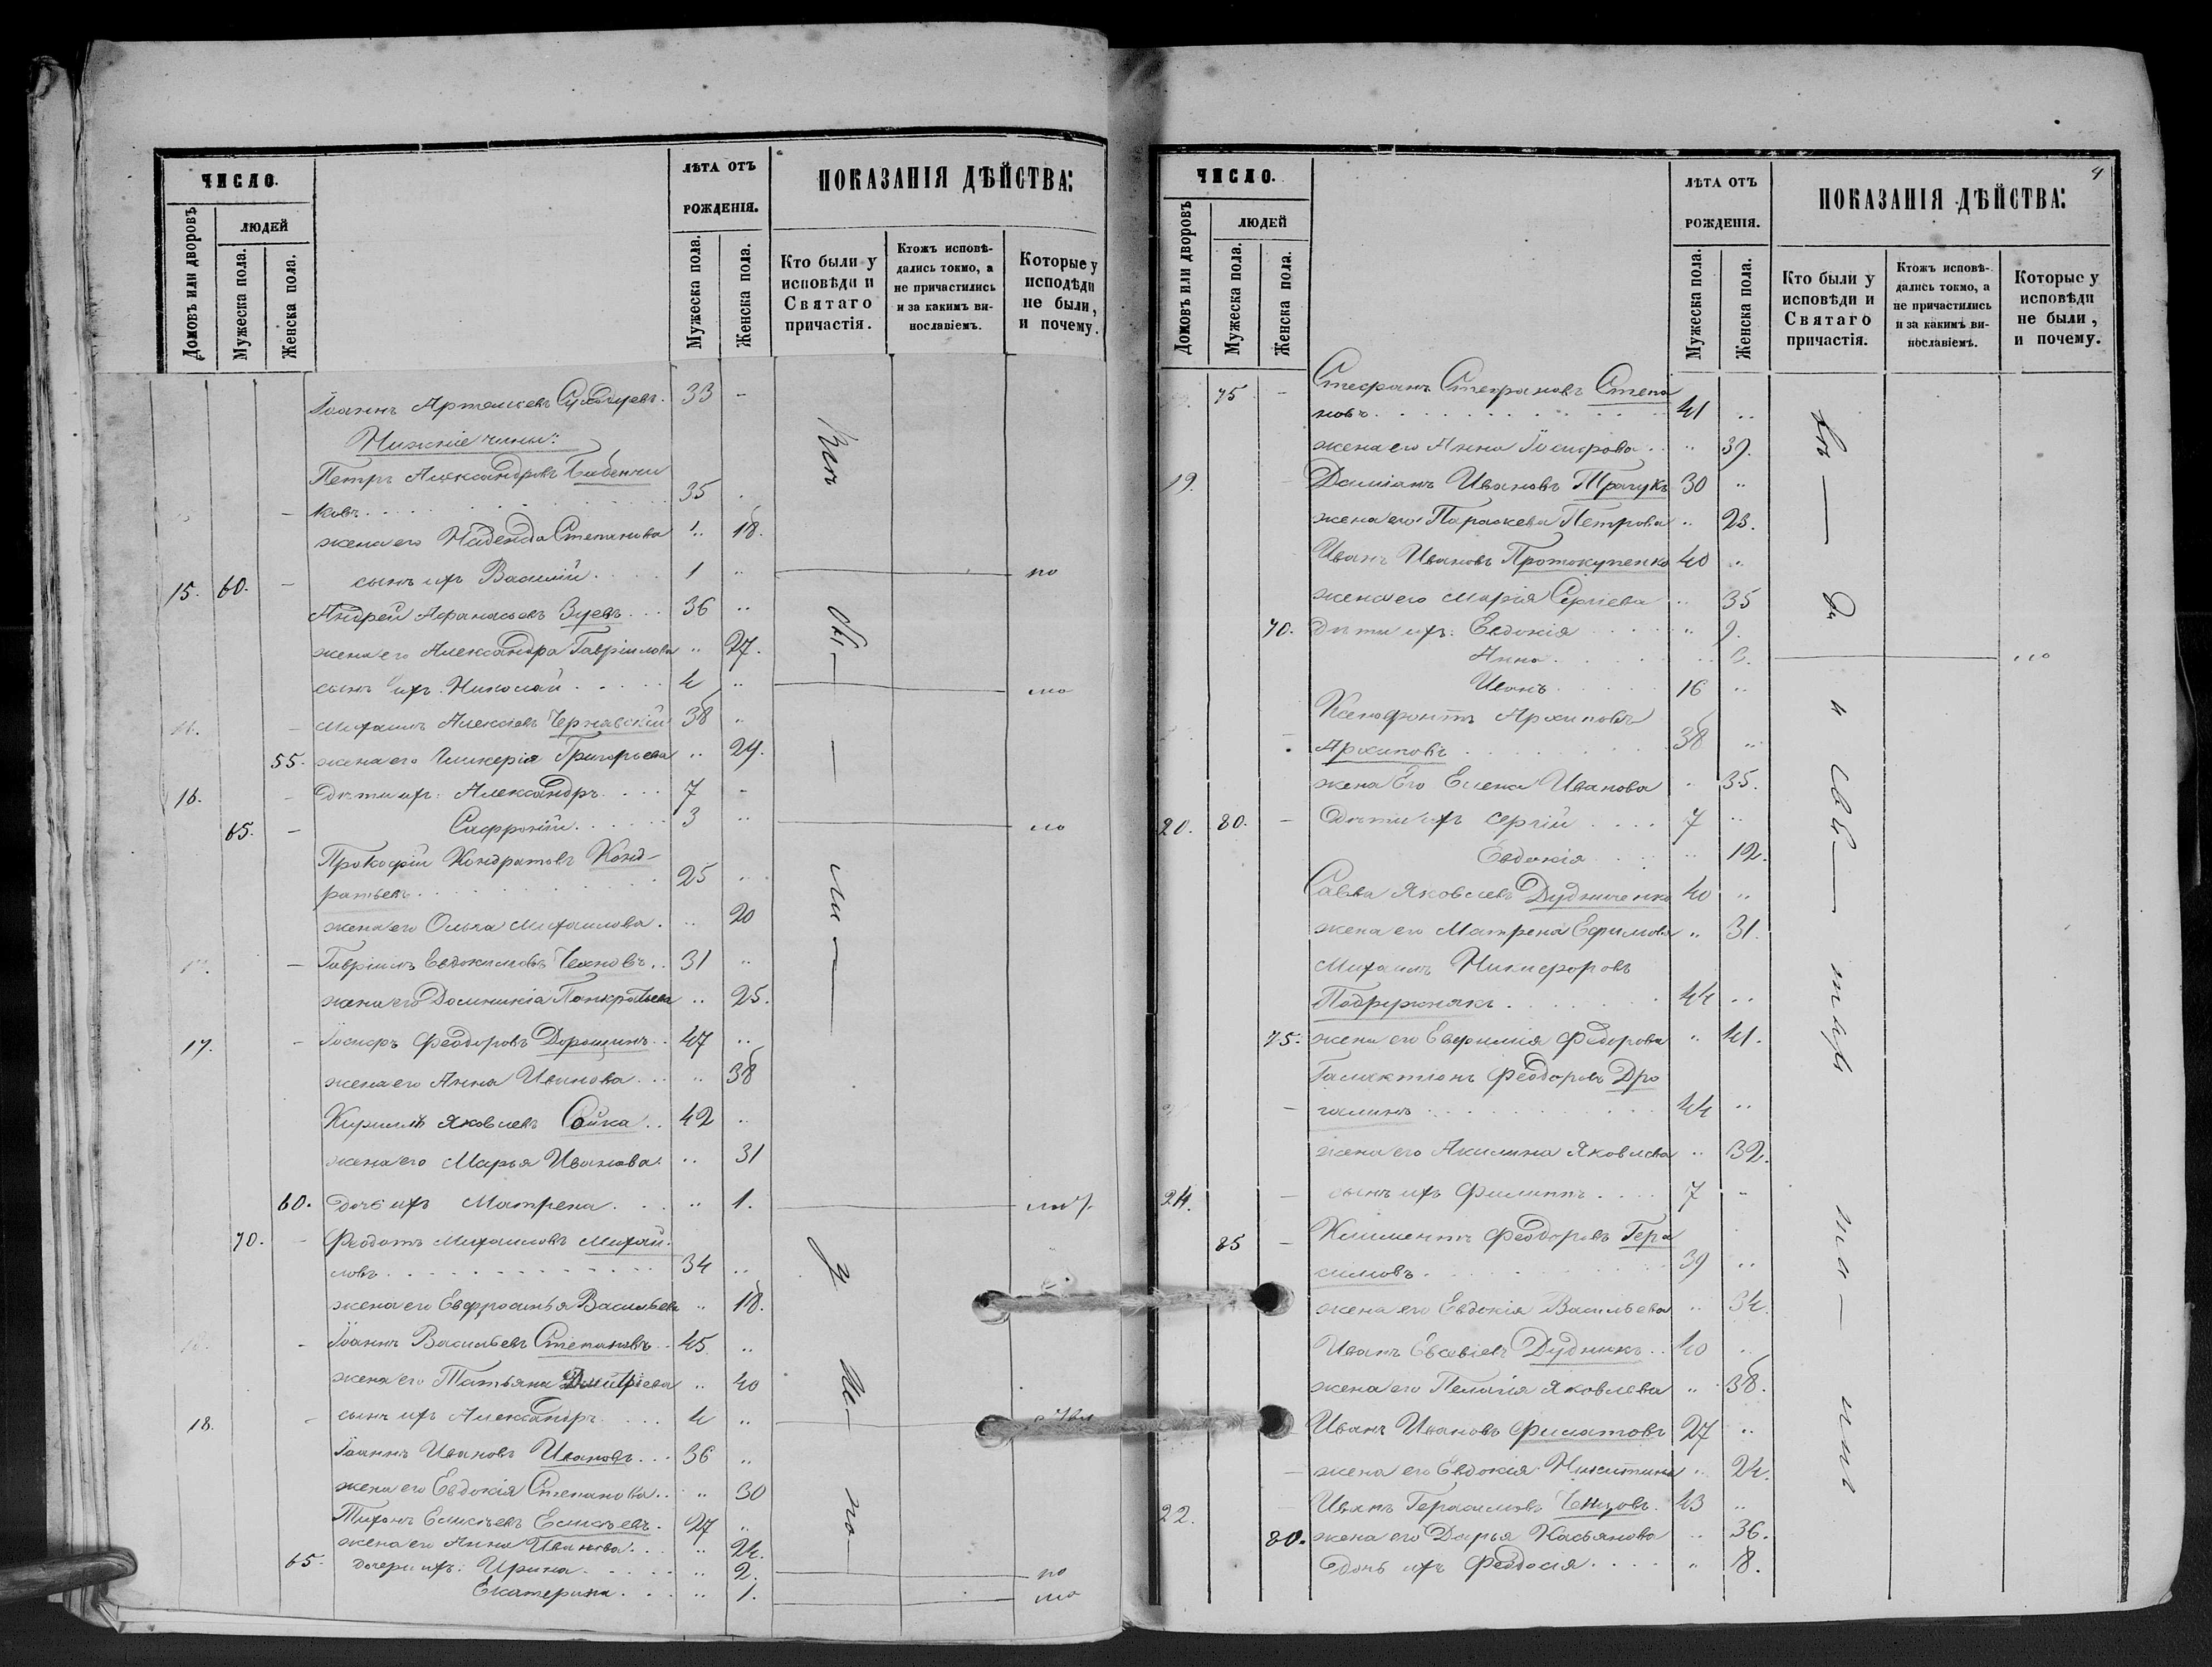 ЧИСЛО.
ЛѢТА ОТЪ РОЖДЕНІЯ.
ПОКАЗАНІЯ ДѢЙСТВА:
Домовъ или дворовъ
ЛЮДЕЙ
Мужеска пола.
Женска пола.
Мужеска пола.
Женска пола.
Кто были у исповѣди и Святаго причастія.
Ктожъ исповѣ-дались токмо, а не причастились и за какимъ ви-нословіемъ.
Которые у исподѣди не были, и почему.
Іоаннъ Артемьевъ 33 -
Нижніе чины:
Петръ Александровъ Бабенчи
ковъ 35
жена его Надежда Степанова " 18.
15. 60. - сынъ ихъ Василій 1 "
Андрей Афанасьевъ Зуевъ 36 "
жена его Александра Гавріилова " 27.
сынъ ихъ Николай 4 "
Михаилъ Алексѣевъ Чернявскій 38 "
55. жена его Гликерія Григорьева " 29.
16. - Дѣти ихъ: Александръ 7 -
65. - Сафроній 3 "
Прокофій Кондратовъ Конд-
ратьевъ 25 "
жена его Ольга Михаилова " 20
- Гавріилъ Евдокимовъ Чехновъ 31 "
жена его Домникія Панкратьева " 25.
17. - Іосифъ Феодоровъ Дорошинъ 47 "
жена его Анна Иванова " 38
Кириллъ Яковлевъ Сойка 42 "
жена его Марья Иванова " 31
60. Дочь ихъ Матрена " 1.
70. - Феодотъ Михаиловъ Михаи-
ловъ 34 "
жена его Евфросинья Васильева " 18.
- Іоаннъ Васильевъ Степановъ 45 "
жена его Татьяна Димитріева " 40
18. - сынъ ихъ Александръ 4 "
Іоаннъ Ивановъ Ивановъ 36 "
жена его Евдокія Степанова " 30
Тихонъ Елисѣевъ Елисѣевъ 27 "
жена его Анна Иванова " 24.
65. Дочери ихъ: Ирина " 2.
Екатерина " 1.
4
ЧИСЛО.
ЛѢТА ОТЪ РОЖДЕНІЯ.
ПОКАЗАНІЯ ДѢЙСТВА:
Домовъ или дворовъ
ЛЮДЕЙ
Мужеска пола.
Женска пола.
Мужеска пола.
Женска пола.
Кто были у исповѣди и Святаго причастія.
Ктожъ исповѣ-дались токмо, а не причастились и за какимъ ви-нословіемъ.
Которые у исповѣди не были, и почему.
75 - Стефанъ Стефановъ Степа
новъ 41 "
жена его Анна Іосифова " 39.
19. Даміанъ Ивановъ Трачукъ 30 "
жена его Параскева Петрова " 23.
Иванъ Ивановъ Протокупенко 40 "
жена его Марія Сергіева " 35
70. Дѣти ихъ: Евдокія " 9.
Анна " 3.
Иванъ 16 "
Ксенофонтъ Архиповъ
Архиповъ 38 "
жена Его Елена Иванова " 35.
20. 80. - Дѣти ихъ Сергій 7 "
Евдокія " 12.
Савва Яковлевъ Дудниченко 40 "
жена его Матрена Ефимова " 31.
Михаилъ Никифоровъ
Подрижнякъ 44 "
75. жена его Евфимія Федорова " 41.
Галактіонъ Феодоровъ Дро
голинъ 44 "
жена его Акилина Яковлева " 32.
21. - сынъ ихъ Филиппъ 7 -
85 - Климентъ Феодоровъ Гера
симовъ 39 "
жена его Евдокія Васильева " 34.
Иванъ Евсевіевъ Дудникъ 40 "
жена его Пелагія Яковлева " 38.
Иванъ Ивановъ Филатовъ 27 "
- жена его Евдокія Никитина " 24.
22. Иванъ Герасимовъ 43 "
80. жена его Дарья Касьянова " 36.
Дочь ихъ Феодосія " 18.